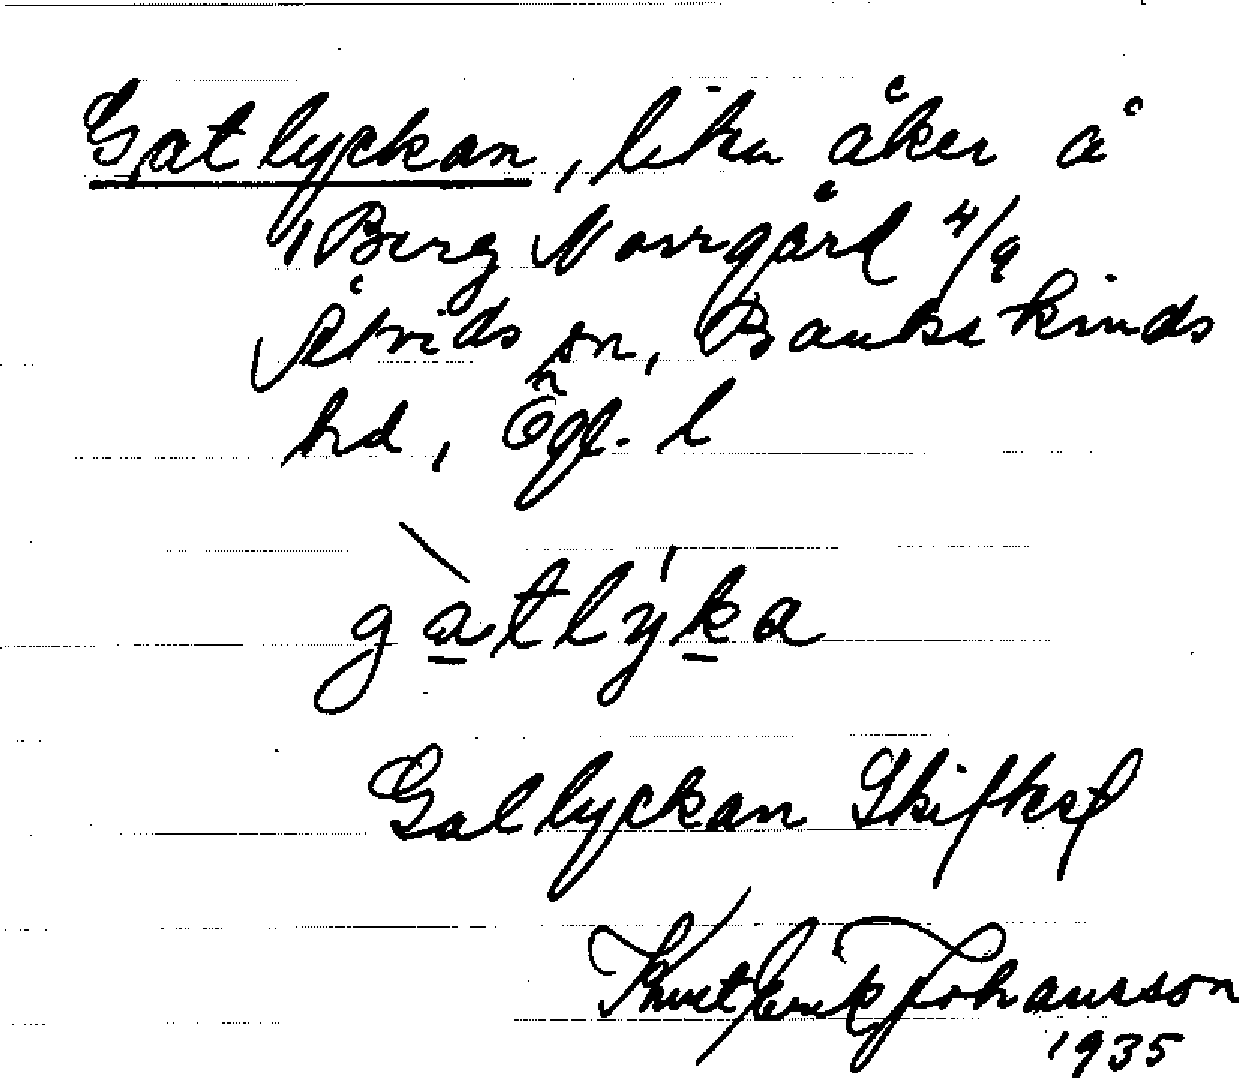 Gatlyckan, lika åker å
Berg Norrgård 4/9
Åtvids sn, Bankekinds
hd, Ögl. l
gatlyka
Gatlyckan Skifteskl
Knut Erik Johansson
1935